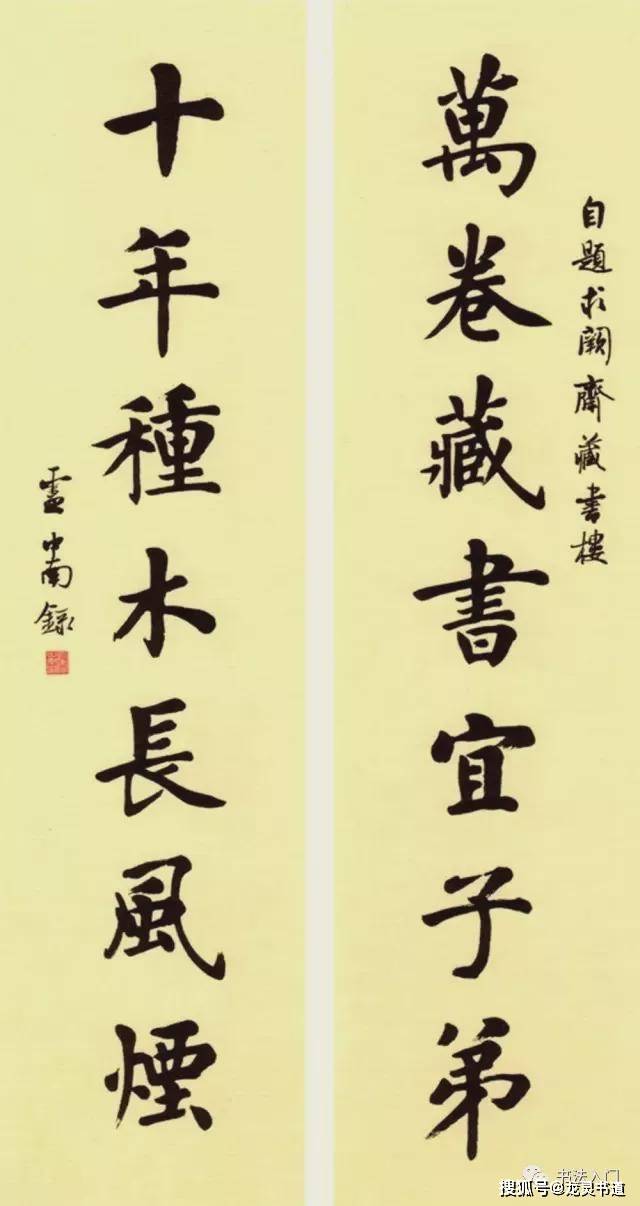 自題求闕齋藏書樓
萬卷藏書宜子弟
十年種木長風煙
盧中南錄
书法入门
搜狐号@龙灵书道